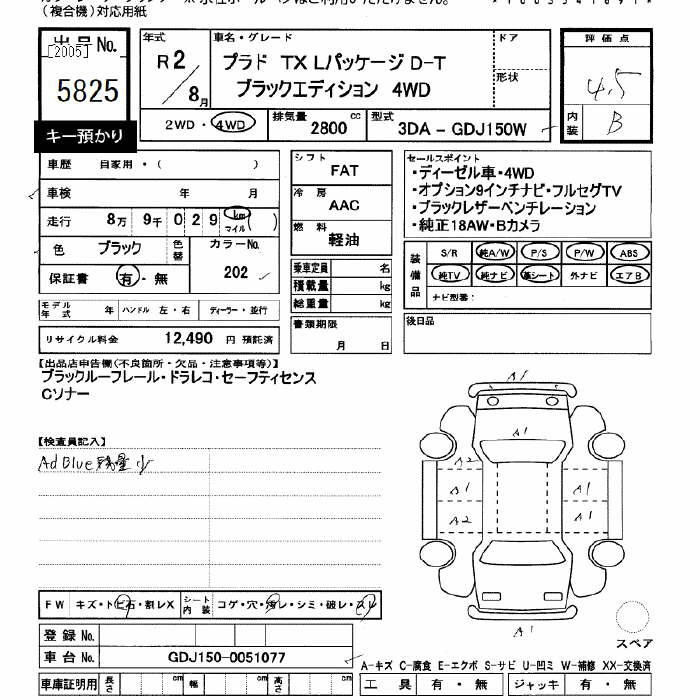 (複合機)対応用紙
出品No.
[2005]
5825
キー預かり
年式
R2/8月
車名・グレード
プラド TX Lパッケージ D-T
ブラックエディション 4WD
ドア
形状
2WD・4WD
排気量 2800 cc
型式 3DA-GDJ150W
評価点
4.5
内装
B
車歴 自家用・( )
車検 年 月
走行 8万 9千 0 2 9 km マイル ( )
色 ブラック
色替
カラーNo.
202
保証書 有・無
シフト
FAT
冷房
AAC
燃料
軽油
乗車定員 名
積載量 kg
総重量 kg
セールスポイント
・ディーゼル車・4WD
・オプション9インチナビ・フルセグTV
・ブラックレザーベンチレーション
・純正18AW・Bカメラ
装備品
S/R 純A/W P/S P/W ABS
純TV 純ナビ 革シート 外ナビ エアB
ナビ型番:
モデル年式 年 ハンドル 左・右 ディーラー・並行
リサイクル料金 12,490 円 預託済
書類期限
月 日
後日品
【出品店申告欄(不良箇所・欠品・注意事項等)】
ブラックルーフレール・ドラレコ・セーフティセンス
Cソナー
【検査員記入】
AdBlue残量小
A1
A1
A2
A1 A1
A2 A1
A1
FW キズ・トビ石・割レX
シート内装 コゲ・穴・汚レ・シミ・破レ・スレ
スペア
登録No.
車台No. GDJ150-0051077
A-キズ C-腐食 E-エクボ S-サビ U-凹ミ W-補修 XX-交換済
車庫証明用 長さ cm 幅 cm 高さ cm
工具 有・無 ジャッキ 有・無